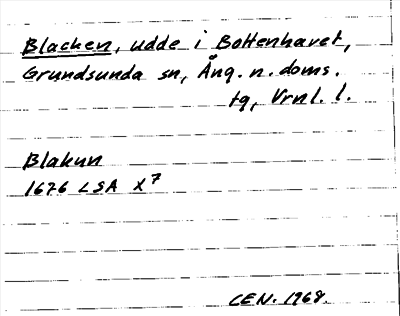 Blacken, udde i Bottenhavet,
Grundsunda sn, Ång. n. doms.
tg, Vrnl. l.
Blakun
1676 LSA X7
CEN. 1968.